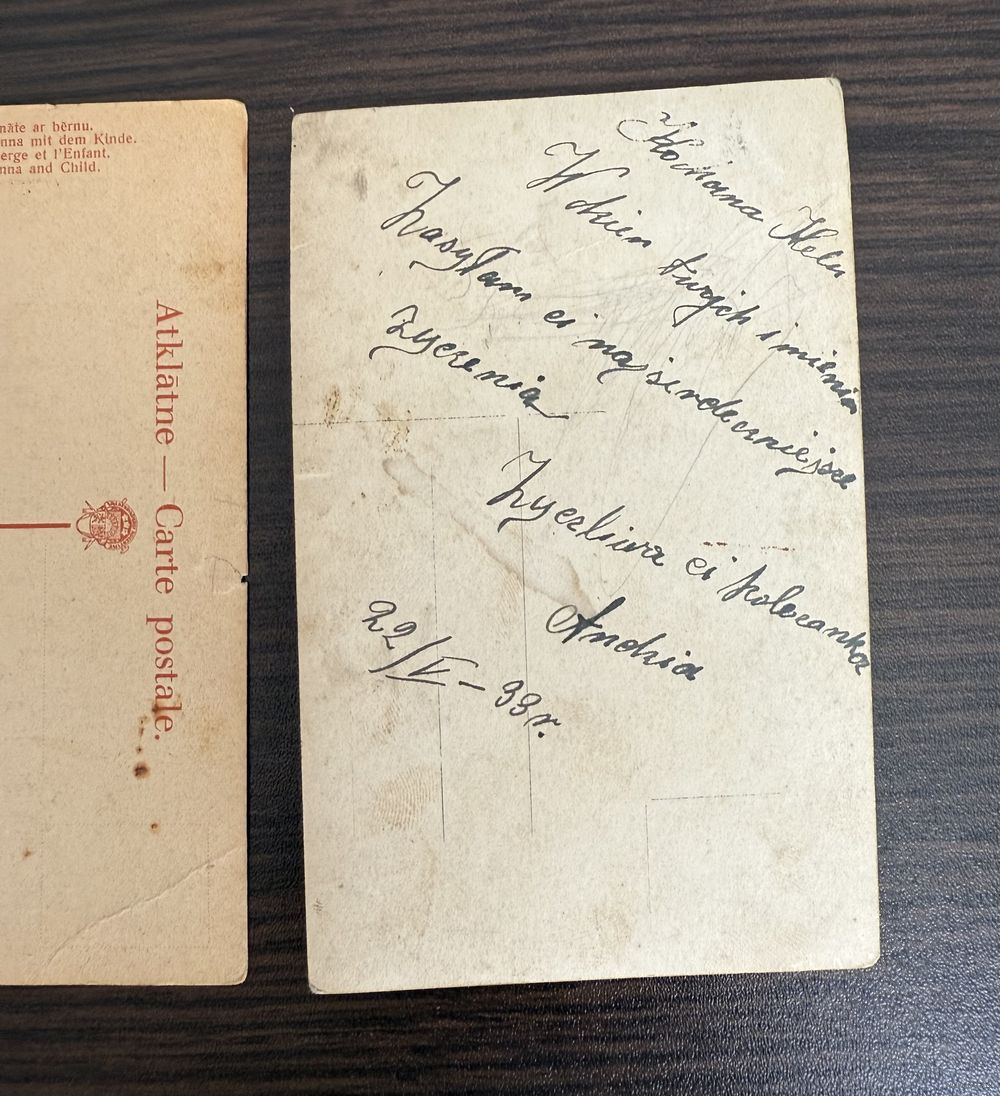 nāte ar bērnu.
nna mit dem Kinde.
erge et l'Enfant.
nna and Child.
Atklātne — Carte postale.
Kochana Helu
W dzien twych imienia
Zasyłam ci najserdeczniejsze
życzenia
Życzliwa ci koleżanka
Andzia
22/V – 33 r.